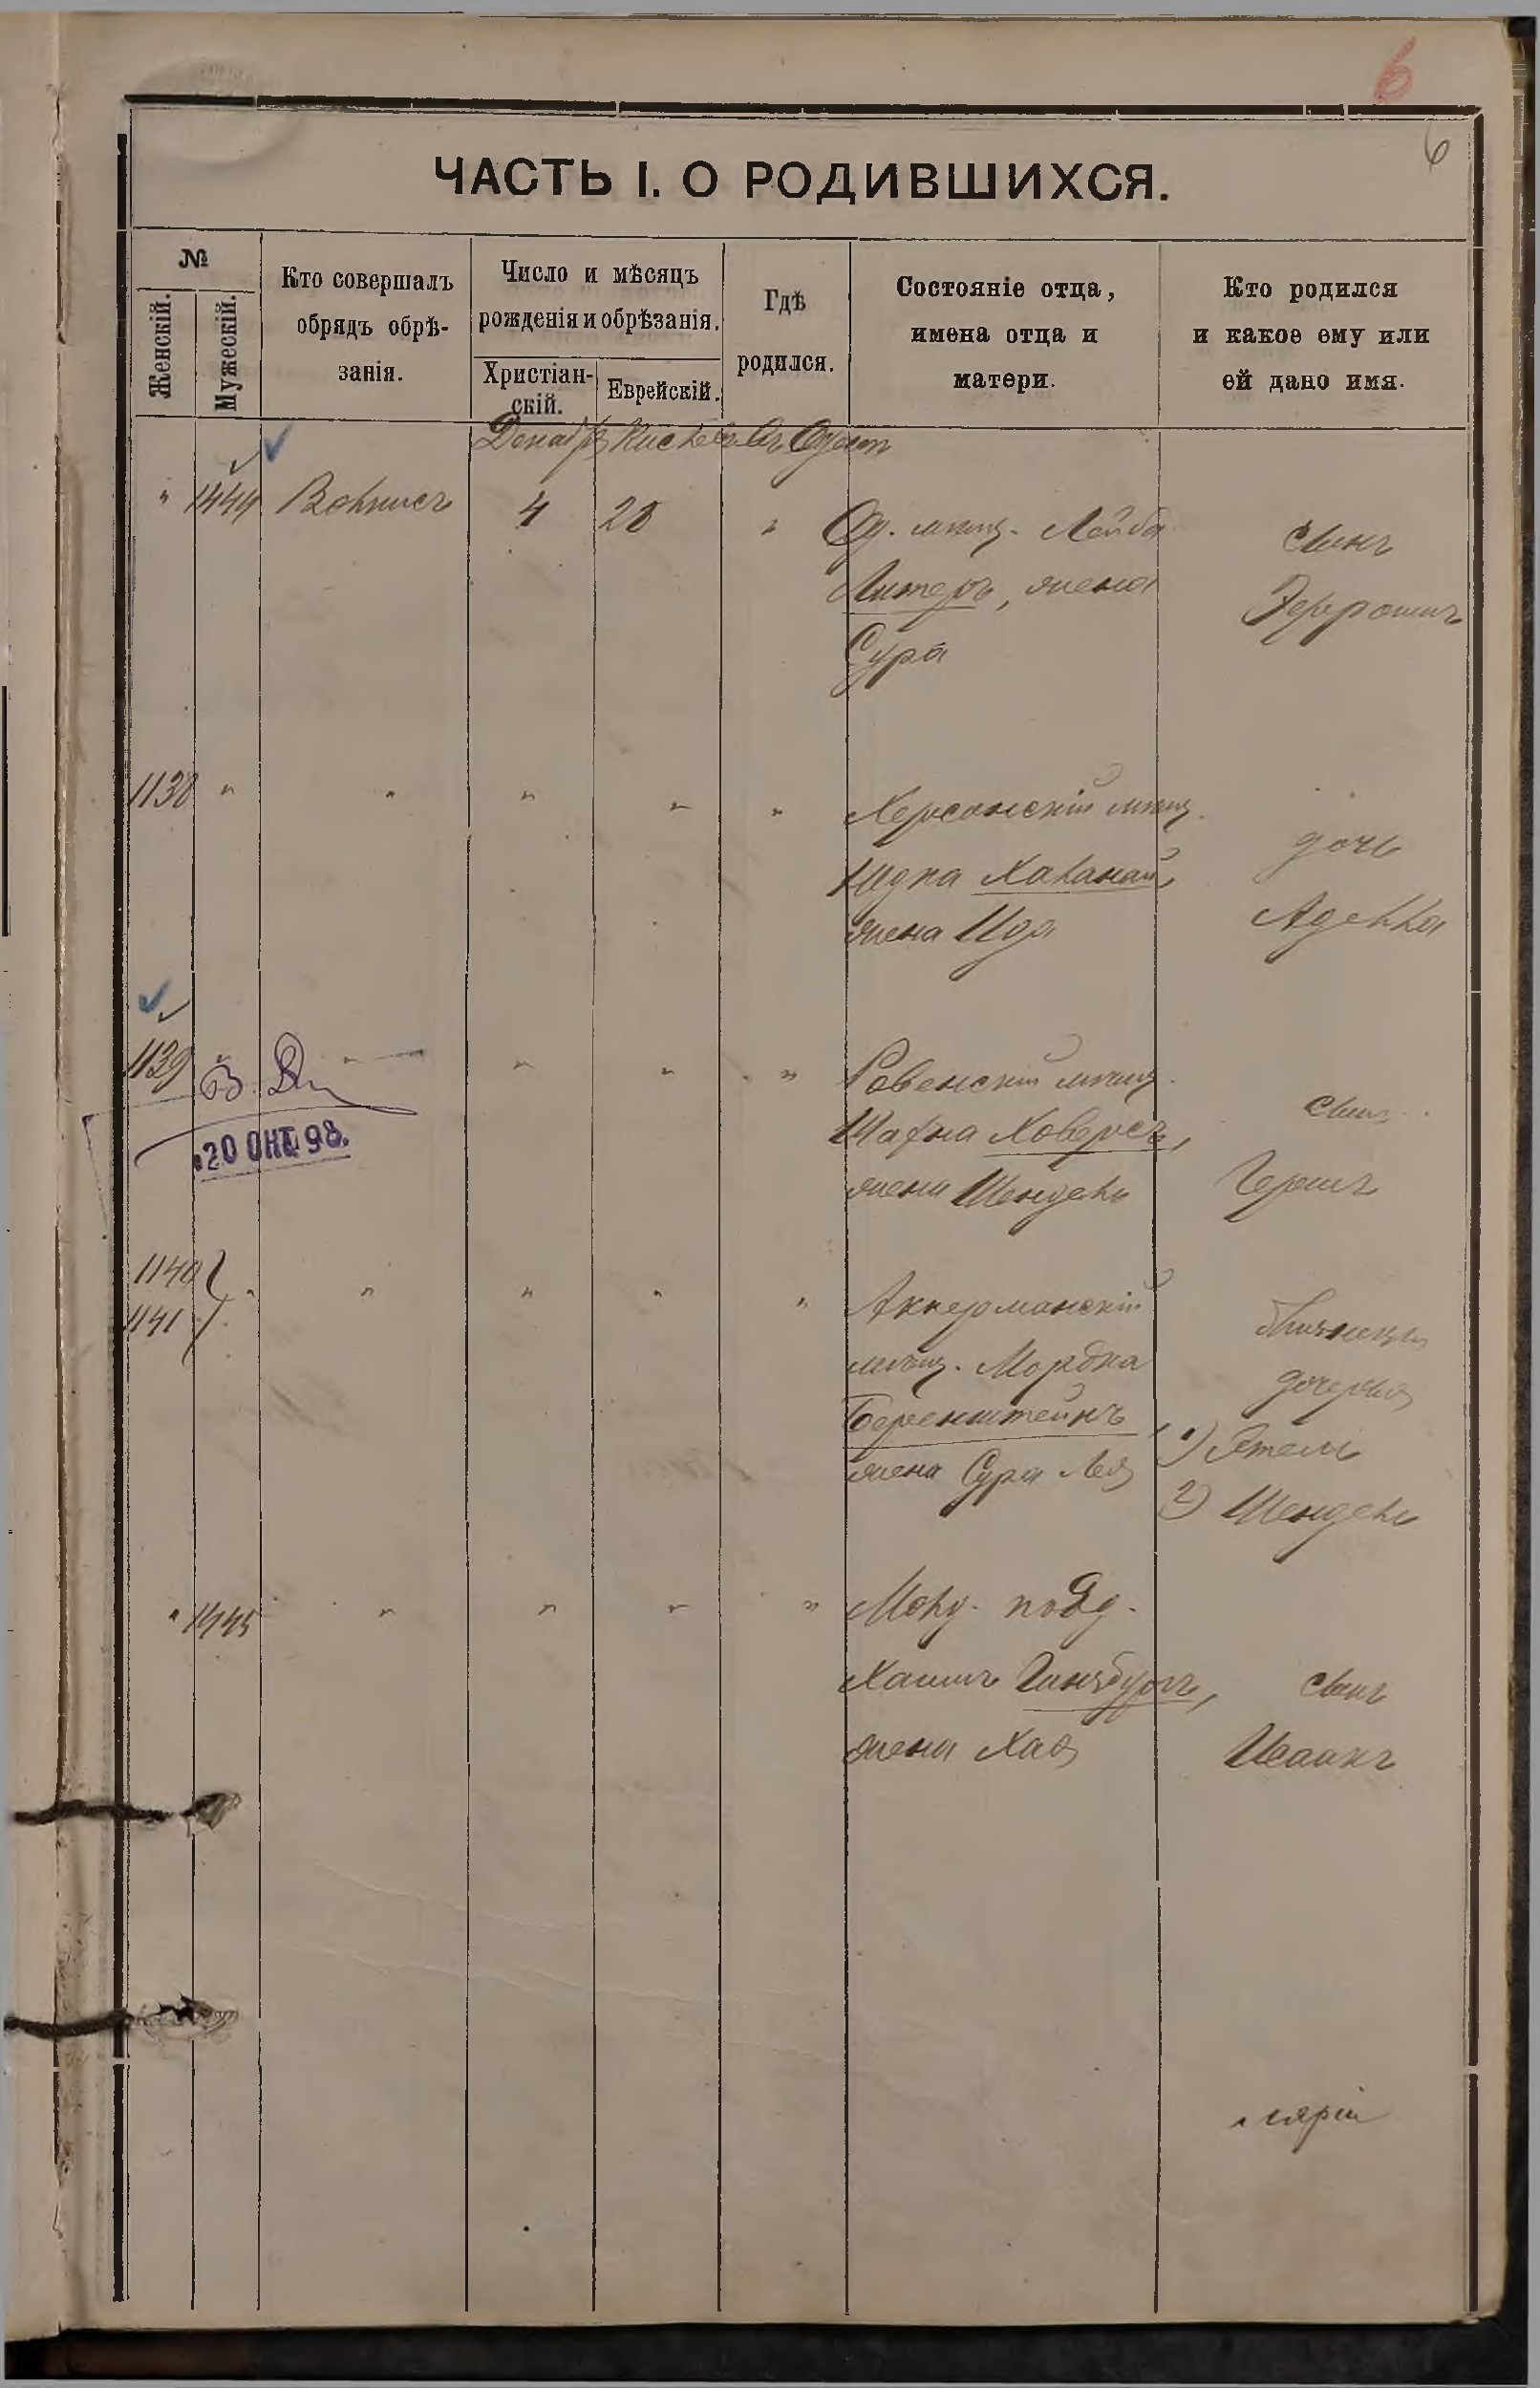 6
6
ЧАСТЬ I. О РОДИВШИХСЯ.
№
Женскій.
Мужескій.
Кто совершалъ
обрядъ обрѣ-
занія.
Число и мѣсяцъ
рожденія и обрѣзанія.
Христіан-
скій.
Еврейскій.
Гдѣ
родился.
Состояніе отца,
имена отца и
матери.
Кто родился
и какое ему или
ей дано имя.
Декабр Кислевъ Въ Одесс
" 1444 4 28 " Од. мѣщ. Лейба
Литеръ, жена
Сура
сынъ
1138 " " " " " Херсонскій мѣщ.
Юдка
жена Ида
дочь
Аделла
1139 " " " " " Ровенскій мѣщ.
20 ОКТ 98.
Шафна Ховересъ,
жена Шендель
сынъ
Гершъ
1140
1141 " " " " " Аккерманскій
мѣщ. Мордка
Беренштейнъ,
жена Сура Лея
близнецы
дочери
1)
2) Шендель
" 1445 " " " " Молд. подд.
Хаимъ Гинзбургъ,
жена Хая
сынъ
Исаакъ